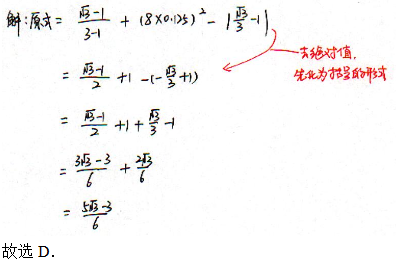 解:原式= (√3-1)/(3-1) + (8×0.125)² - |√3/3-1|
去绝对值,
先化为括号的形式
= (√3-1)/2 +1 -(-√3/3+1)
= (√3-1)/2 +1 + √3/3 -1
= (3√3-3)/6 + 2√3/6
= (5√3-3)/6
故选 D.